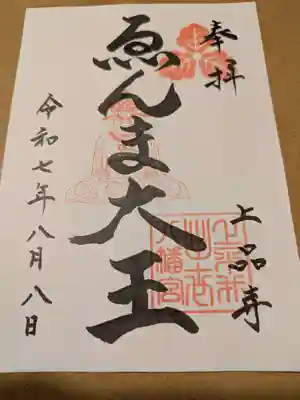 奉拝
上品寺
ゑんま大王
令和七年八月八日